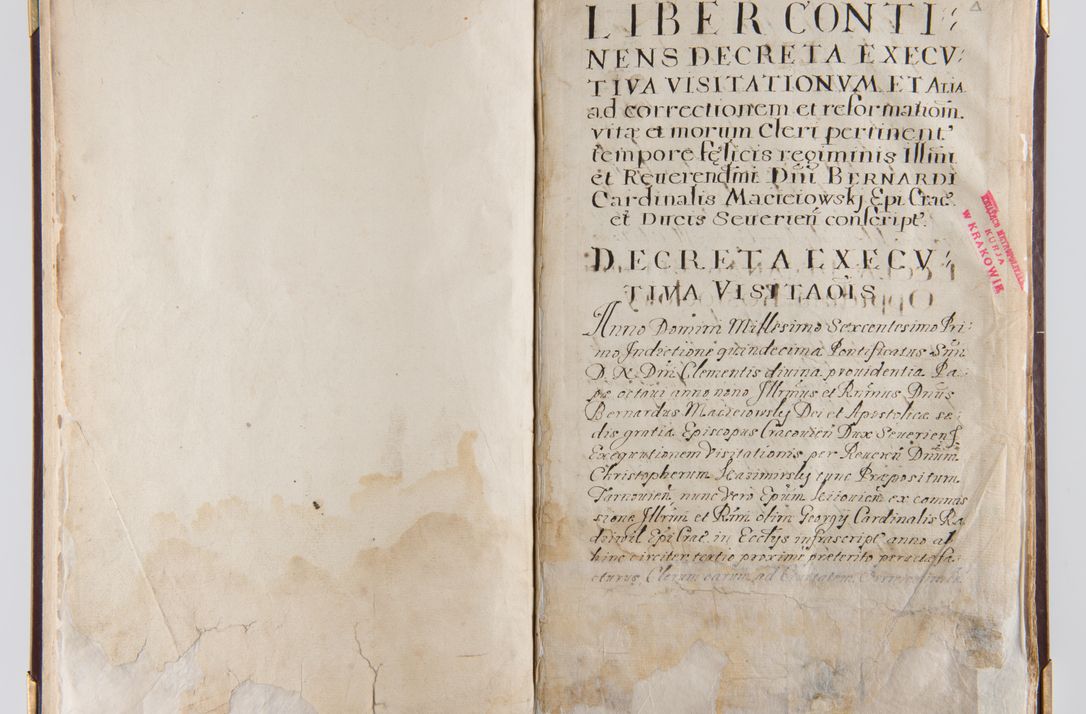 LIBER CONTI⸗
NENS DECRETA EXECV⸗
TIVA VISITATIONVM ET ALIA
ad correctionem et reformatioñ.
vitæ et morum Cleri pertinent'
tempore fęlicis regiminis Illm̃i
et Reuerendm̃i Dñi BERNARDI
Cardinalis Macieiowskj Epi Crac̃.
et Ducis Seuerień conscript'.
DECRETA EXECV⸗
TIVA VISITAOĨS
Anno Domini Millesimo Sexcentesimo Pri⸗
mo Indictione quindecima Pontificatus Sm̃i
D. N. Dñi Clementis diuina prouidentia Pa⸗
pæ octaui anno nono Illrm̃us et Rm̃us Dñus
Bernardus Macieiowskj Dei et Apostolicæ se⸗
dis gratia Episcopus Cracouień Dux Seuerień
Exequutionem Visitationis per Dñum
Christopherum Kazimirskj tunc Præpositum
Tarnouień nunc vero Epum Kiiouień ex commis
sione Illrm̃i et Rm̃i olim Georgij Cardinalis Ra
dziwil Epi Crac̃. in Ecclijs infrascript' anno ab
hinc circiter tertio proxime præterito peractæ fa⸗
cturus, Clerum earum ad
KSIĄŻĘCO METROPOLITALNA
KURJA
W KRAKOWIE